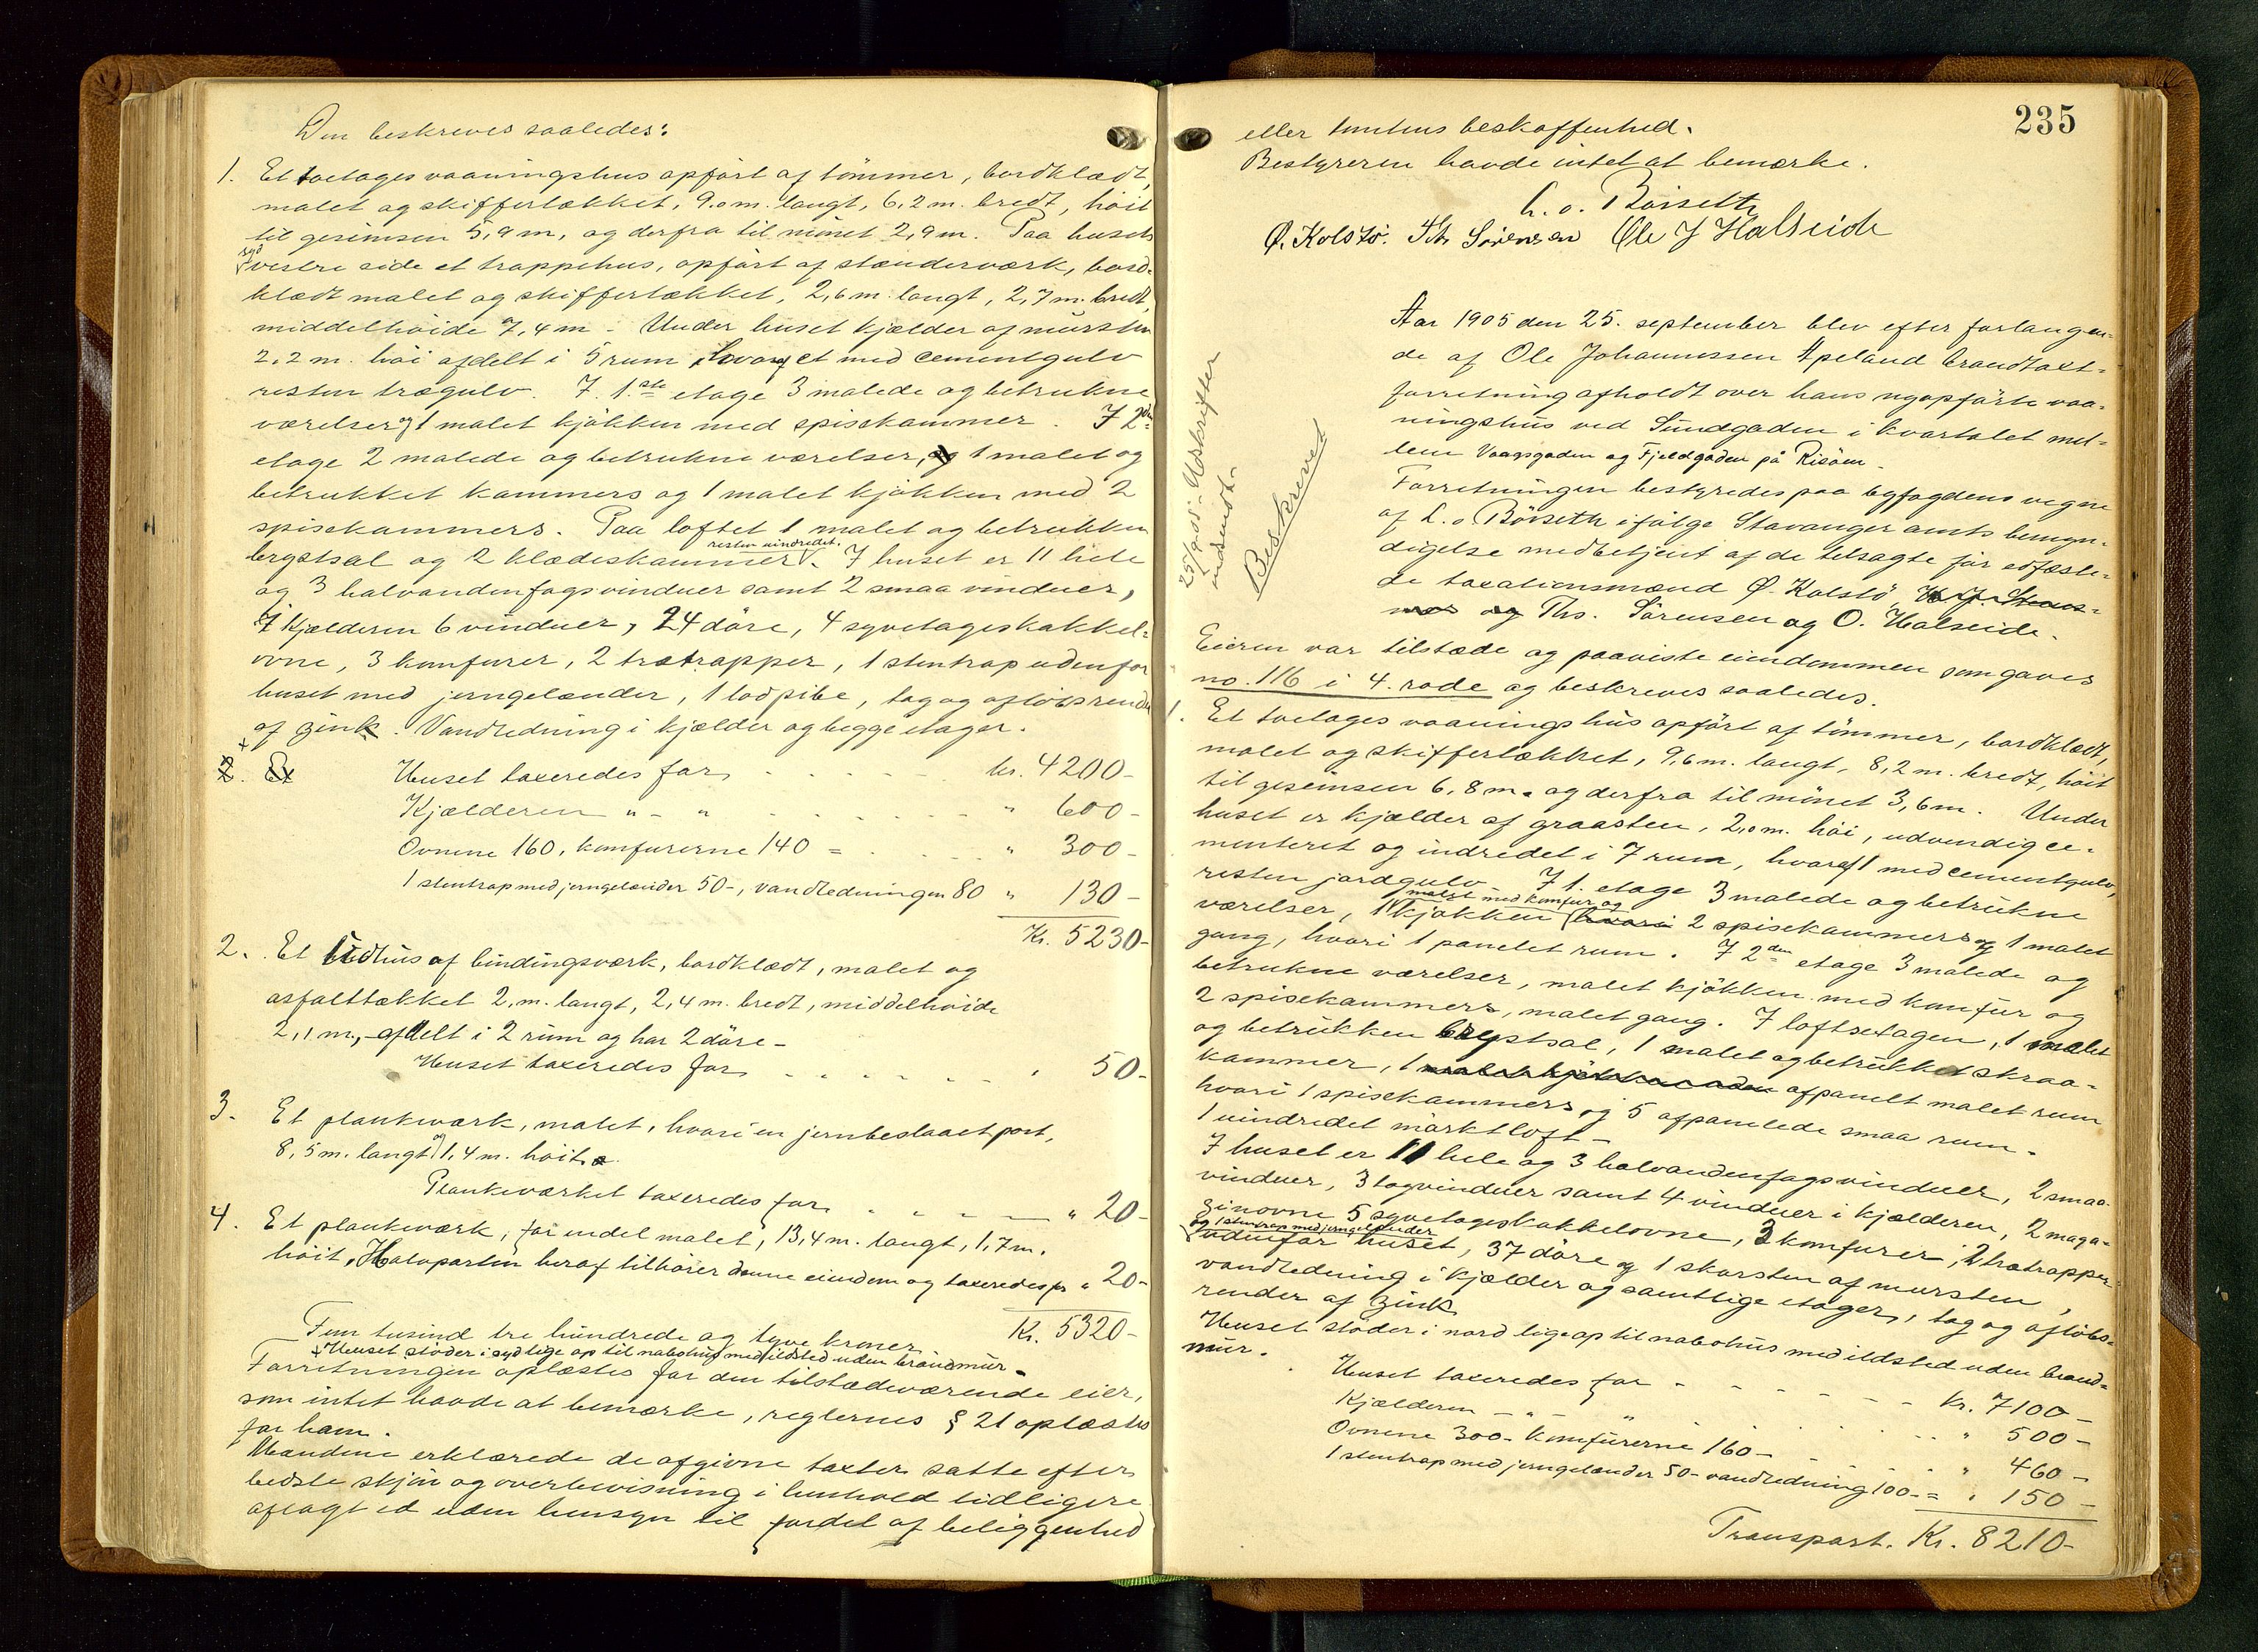 Den beskreves saaledes:
1. Et toetages vaaningshus opført af tømmer, bordklædt,
malet og skiffertækket, 9.0 m. langt, 6,2 m. bredt, höit
til gesimsen 5,9 m, og derfra til mönet 2,9 m. Paa husets
vestre side et trappehus, opført af stænderværk, bord-
klædt malet og skiffertækket, 2,6 m. langt, 2,7 m. bredt,
middelhöide 7,4 m - Under huset kjælder af mursten
2,2 m. höi afdelt i 5 rum, hvoraf et med cementgulv
resten trægulv. I 1.ste etage 3 malede og betrukne
værelser og 1 malet kjökken med spisekammer. I 2den
etage 2 malede og betrukne værelser, 1 malet og
betrukket kammers og 1 malet kjökken med 2
spisekammers. Paa loftet 1 malet og betrukken
resten uindredet.
brystsal og 2 klædeskammer. I huset er 11 hele
og 3 halvandenfagsvinduer samt 2 smaa vinduer,
I kjælderen 6 vinduer, 24 döre, 4 syvetageskakkel-
ovne, 3 komfurer, 2 trætrapper, 1 stentrap udenfor
huset med jerngelænder, 1 lodpibe, tag og aflöbsrender
af zink. Vandledning i kjælder og begge etager.
2. Et Huset taxeredes for kr. 4200-
Kjælderen " - " " 600-
Ovnene 160, komfurerne 140 = " 300-
1 stentrap med jerngelænder 50-, vandledningen 80 " 130-
Kr. 5230-
2. Et udhus af bindingsværk, bordklædt, malet og
asfalttækket 2, m. langt, 2,4 m. bredt, middelhöide
2,1 m, afdelt i 2 rum og har 2 döre-
Huset taxeredes for 50-
3. Et plankeværk, malet, hvori en jernbeslaaet port,
8,5 m. langt og 1,4 m. höit.
Plankeværket taxeredes for " 20-
4. Et plankeværk, for endel malet, 13,4 m. langt, 1,7 m.
höit, Halvparten heraf tilhører denne eiendom og taxeredes for " 20-
Kr. 5320-
Fem tusind tre hundrede og tyve kroner
x Huset støder i syd lige op til nabohus med ildsted uden brandmur-
Forretningen oplæstes for den tilstedeværende eier,
som intet havde at bemærke, reglernes § 21 oplæstes
for ham.
Mændene erklærede de afgivne taxter satte efter
bedste skjøn og overbevisning i henhold tidligere
aflagt ed uden hensyn til fordel af beliggenhed
235
eller tomtens beskaffenhed.
Bestyreren havde intet at bemærke.
L. o. Börseth
Ø. Kolstö. Th. Sörensen Ole J Halseide
Aar 1905 den 25. september blev efter forlangen-
de af Ole Johannessen Apeland brandtaxt-
forretning afholdt over hans nyopførte vaa-
ningshus ved Sundgaden i kvartalet mel-
lem Vaagsgaden og Fjeldgaden på Risöen.
Forretningen bestyredes paa byfogdens vegne
af L. o. Börseth ifølge Stavanger amts bemyn-
digelse med betjent af de tilsagte før edfæste-
de taxationsmænd Ø. Kolstö
og Ths. Sörensen og O. Halseide.
25/9 05. Udskrifter
udsendt.
Beskrevet
Eieren var tilstæde og paaviste eiendommen som gaves
no. 116 i 4. rode og beskreves saaledes.
1. Et toetages vaaningshus opført af tömmer, bordklædt,
malet og skiffertækket, 9,6 m. langt, 8,2 m. bredt, höit
til gesimsen 6,8 m. og derfra til mönet 3,6 m. Under
huset er kjælder af graasten, 2,0 m. höi, udvendig ce-
menteret og indredet i 7 rum, hvoraf 1 med cementgulv,
resten jordgulv. I 1. etage 3 malede og betrukne
malet med komfur og
værelser, 1 kjøkken hvori 2 spisekammers og 1 malet
gang, hvori 1 panelet rum. I 2den etage 3 malede og
betrukne værelser, malet kjökken med komfur og
2 spisekammers, malet gang. I loftsetagen, 1 malet
og betrukken brystsal, 1 malet og betrukket skraa-
kammer, 1 malet kjökken uden afpanelt malet rum
hvori 1 spisekammers og 5 afpanelede smaa rum.
1 uindredet mörktloft-
I huset er 11 hele og 3 halvandenfagsvinduer, 2 smaa-
vinduer, 3 tagvinduer samt 4 vinduer i kjælderen, 2 maga-
zinovne 5 syvetageskakkelovne, 3 komfurer, 2 trætrapper
og 1 stentrap med jerngelænder
udenfor huset, 37 döre og 1 skorsten af mursten,
vandledning i kjælder og samtlige etager, tag og aflöbs-
render af zink
Huset støder i nord lige op til nabohus med ildsted uden brand-
mur.
Huset taxeredes for Kr. 7100-
Kjælderen - " - " " 500-
Ovnene 300- Komfurerne 160- " 460-
1 stentrap med jerngelænder 50- vandledning 100- = " 150-
Transport. Kr. 8210-